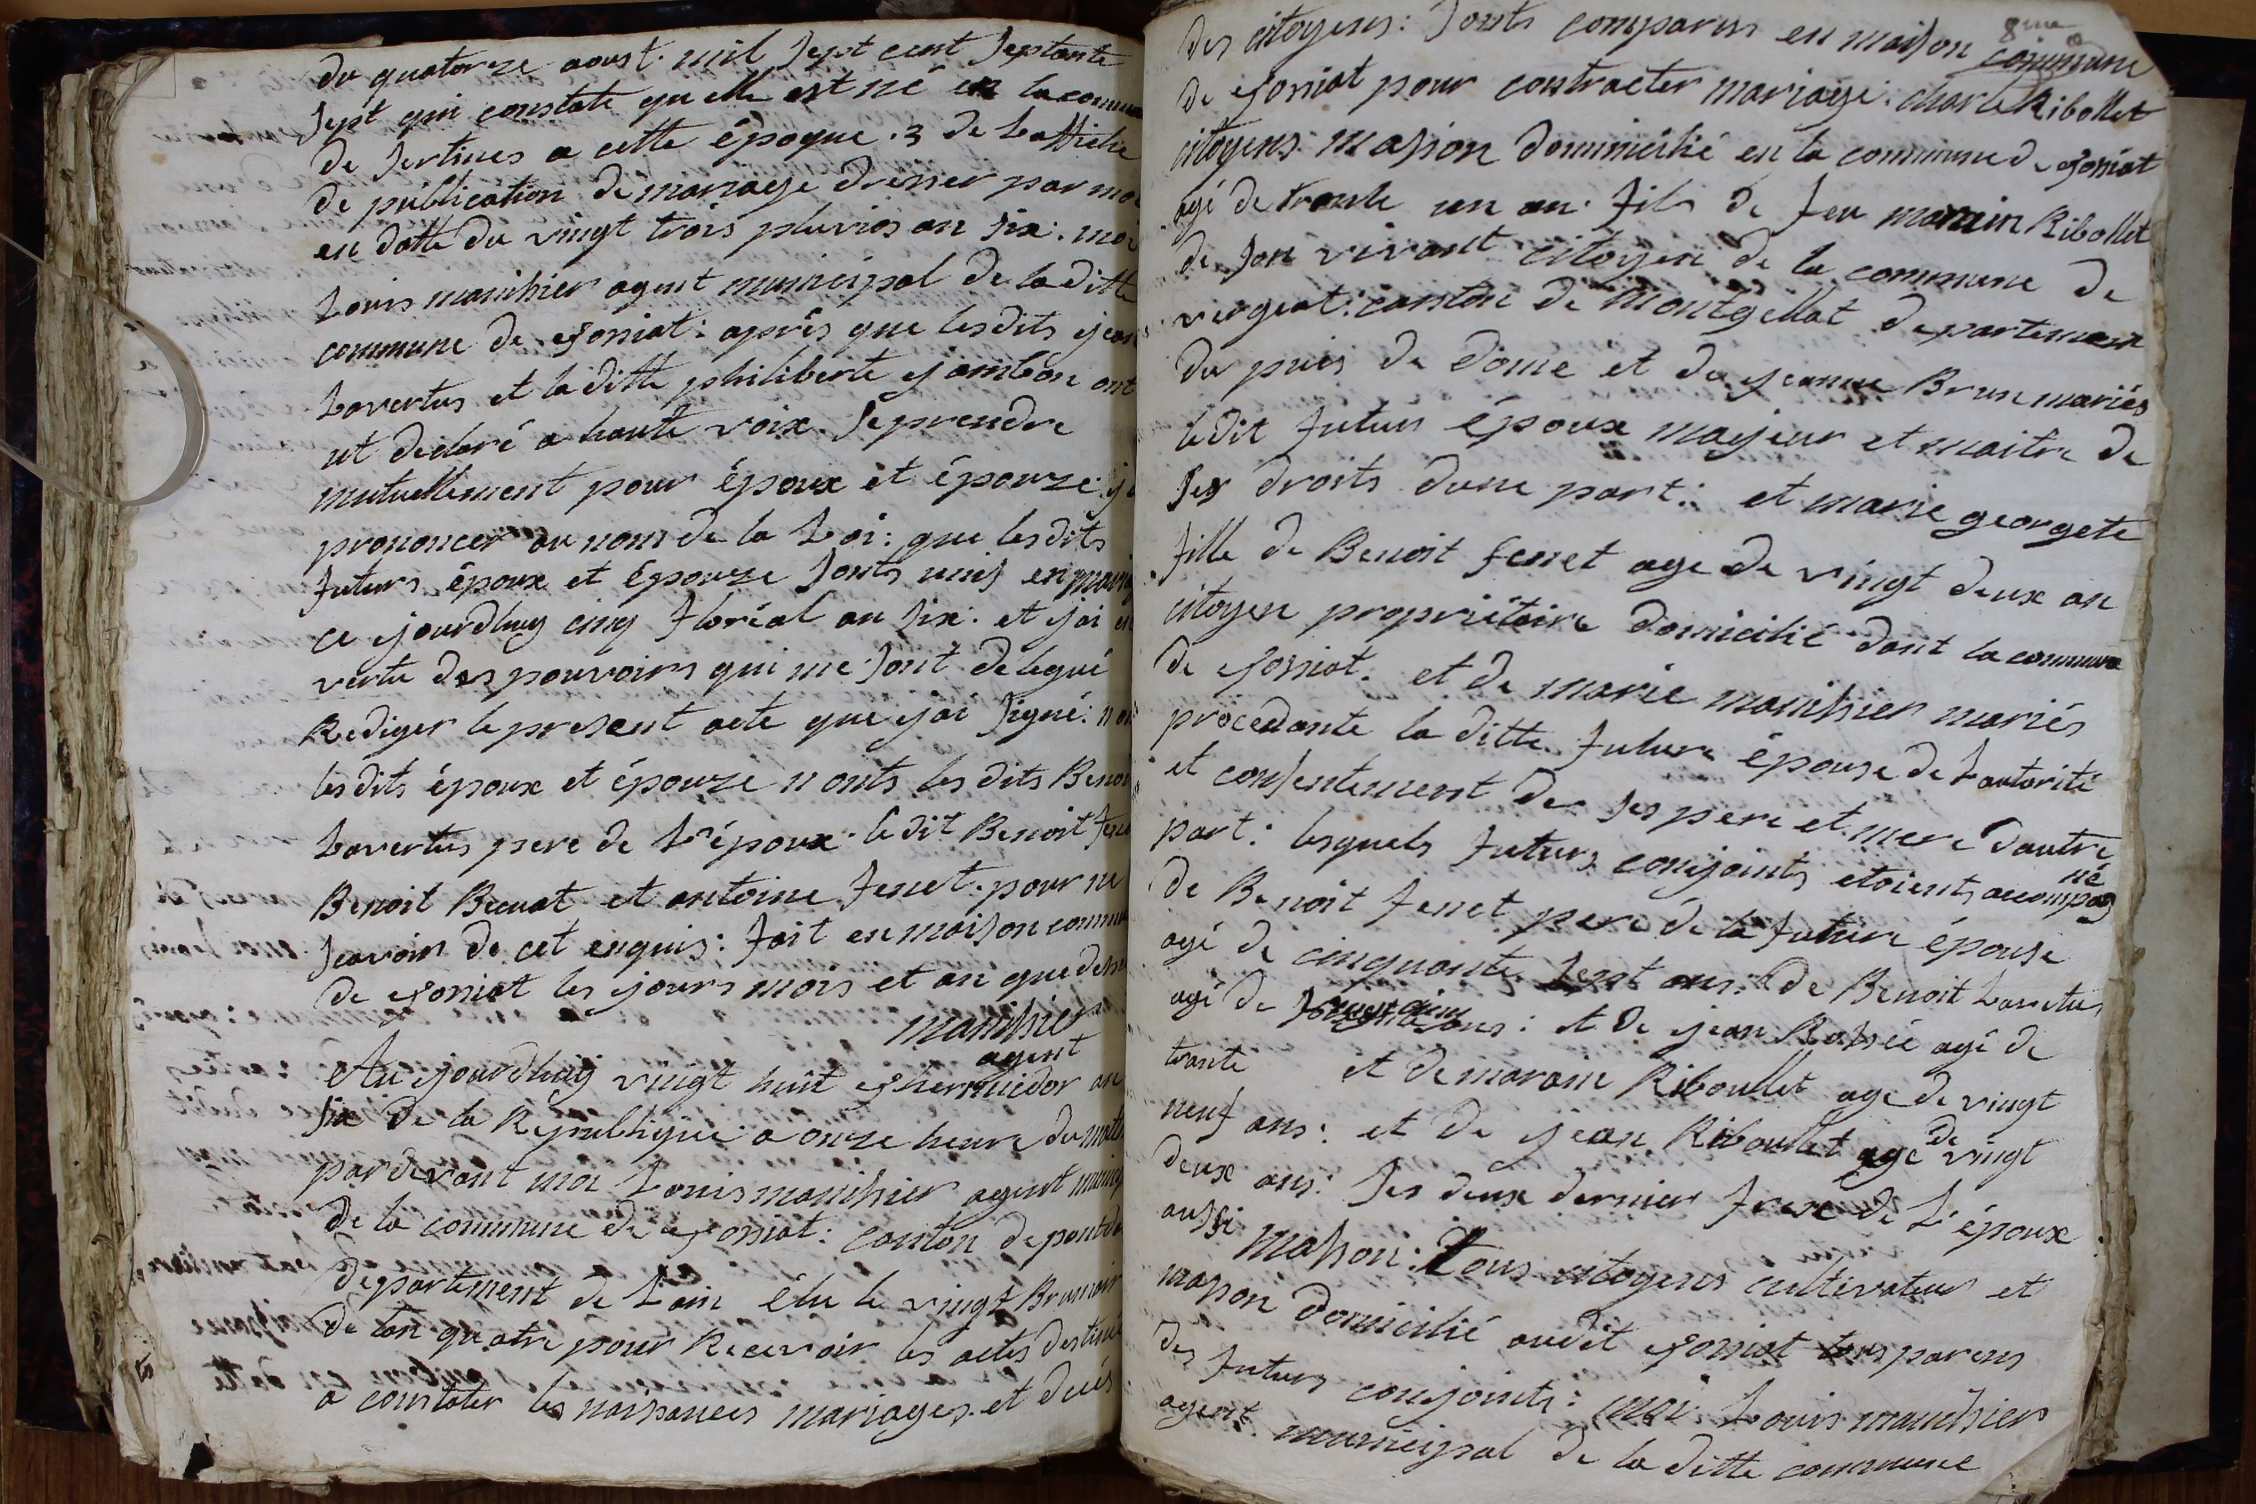 du quatorze aoust mil sept cent septante
sept qui constate qu elle est né en la commune
de sertines a cette époque. 3 de Laffiche
de publication de mariage dresser par moi
en datte du vingt trois pluvios an six. moi
Louis manihier agent municipal de la ditte
commune de josniat: aprés que lesdits jean
Lavertus et la ditte philiberte jambon ont
ut declaré a haute voix se prendre
mutuellement pour époux et épouze: j
prononcer au nom de la Loi: que lesdits
futurs époux et épouze sonts unis en maria
ce jourdhuy cinq floréal an six. et jai en
vertu des pouvoirs qui me sont delegué
Rediger le present acte que jai signé: non
lesdits époux et épouze n onts les dits Benoit
Lavertus pere de L'époux. le dit Benoit fene
Benoit Brunat et antoine fenet. pour ne
scavoir de cet enquis: fait en maison commune
de josniat les jours mois et an que dessu
manihier
agent
Au jourdhuy vingt huit thermidor an
six de la Republique a onze heure du matin
pardevant moi Louis manihier agent munici
de la commune de josniat: canton de pontd
departement de Lain élu le vingt Brumair
de lan quatre pour Recevoir les actes destiné
a constater les naissances mariages et decés
8me
des citoyens: sonts comparus en maison commune
de josniat pour contracter mariage. charle Ribollet
citoyens masson domicilié en la commune de josniat
agé de trante un an. fils de feu marain Ribollet
de son vivant citoyen de la commune de
vergeat: canton de montgellat departement
du puis de dome et de jeanne Brun mariés
ledit futur époux majeur et maitre de
ses droits dune part: et marie georgete
fille de Benoit fenet age de vingt deux an
citoyen propriétaire domicilié dant la commune
de josniat. et de marie manihier mariés
procedante la ditte future épouse de Lautorité
et consentement de ses pere et mere dautre
part: lesquels futurs conjoints etoients accompag
né
de Benoit fenet pere de la future épouse
agé de cinquante sept ans: de Benoit Lavertus
agé de ans: et de jean agé de
trante et de marain Riboullet age de vingt
neuf ans: et de jean Riboullet age de vingt
deux ans: ses deux dernier frere de L'époux
aussi masson: Tous citoyens cultivateur et
masson domicilié audit josniat tous parens
des futurs conjoints: moi Louis manihier
agent municipal de la ditte commune